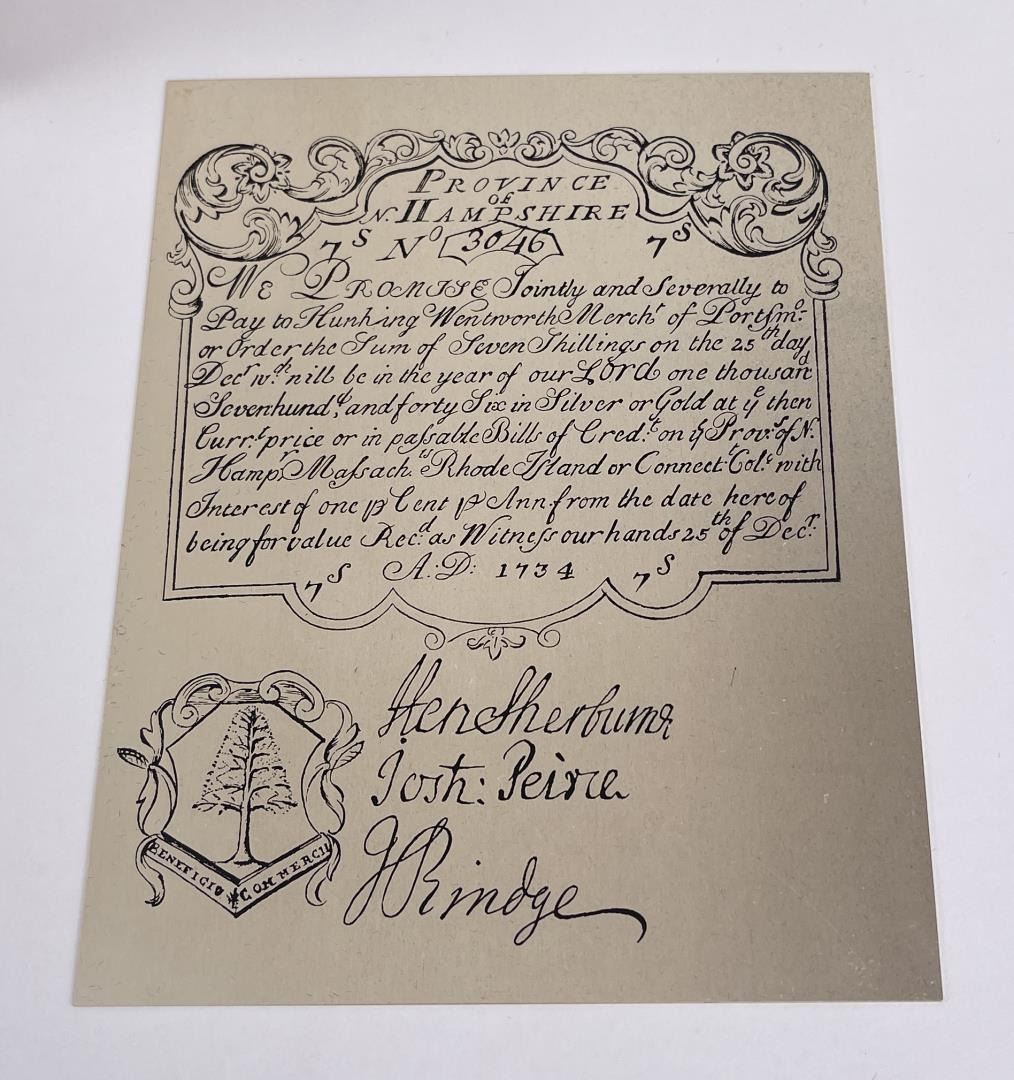 PROVINCE
OF
N. HAMPSHIRE
7S No 3046 7S
WE PROMISE Jointly and Severally to
Pay to Hunking Wentworth Mercht of Portsmo:
or Order the Sum of Seven Shillings on the 25th day
Decr wch will be in the year of our LORD one thousand
Sevenhundd and forty Six in Silver or Gold at ye then
Currt price or in passable Bills of Credt on ye Provs of N.
Hampr Massachts Rhode Island or Connectt Col: with
Interest of one ꝑ Cent ꝑ Ann. from the date here of
being for value Recd as Witness our hands 25th of Decr:
7S A:D: 1734 7S
Hen Sherburne
Josh: Peirce
J Rindge
BENEFICIO COMMERCII